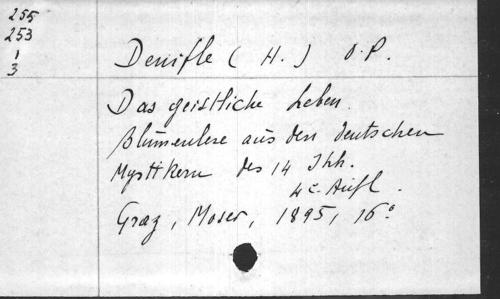 255
253
1
3
Denifle ( H. ) O.P.
Das geistliche Leben.
Blumenlese aus den deutschen
Mystikern des 14 Jhh.
4e Aufl.
Graz, Moser, 1895, 16°